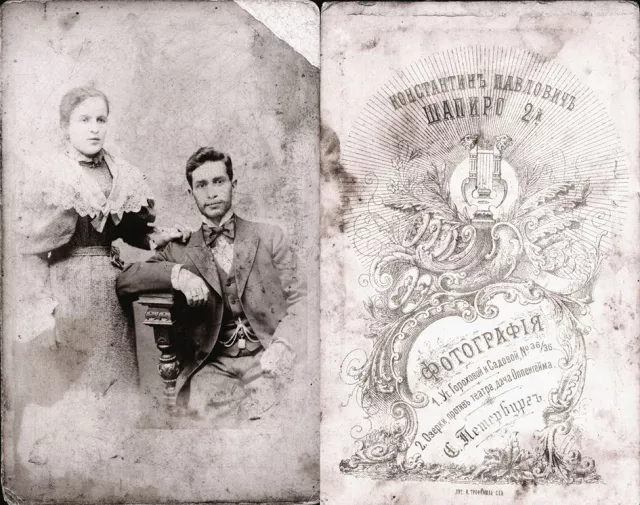 КОНСТАНТИНЪ ПАВЛОВИЧЪ
ШАПИРО 2й
ФОТОГРАФІЯ
1. Уг. Гороховой и Садовой, № 36/36
2. Озерки, против театра, дача Оппенгейма.
С. Петербургъ